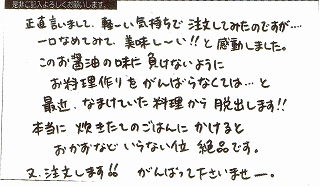 是非ご記入よろしくお願いします。
正直言いまして、軽ーい気持ちで注文してみたのですが....
一口なめてみて、美味し〜い!!と感動しました。
このお醤油の味に負けないように
お料理作りをがんばらなくては…と
最近、なまけていた料理から脱出します!!
本当に炊きたてのごはんにかけると
おかずなどいらない位絶品です。
又、注文します!! がんばって下さいませー。